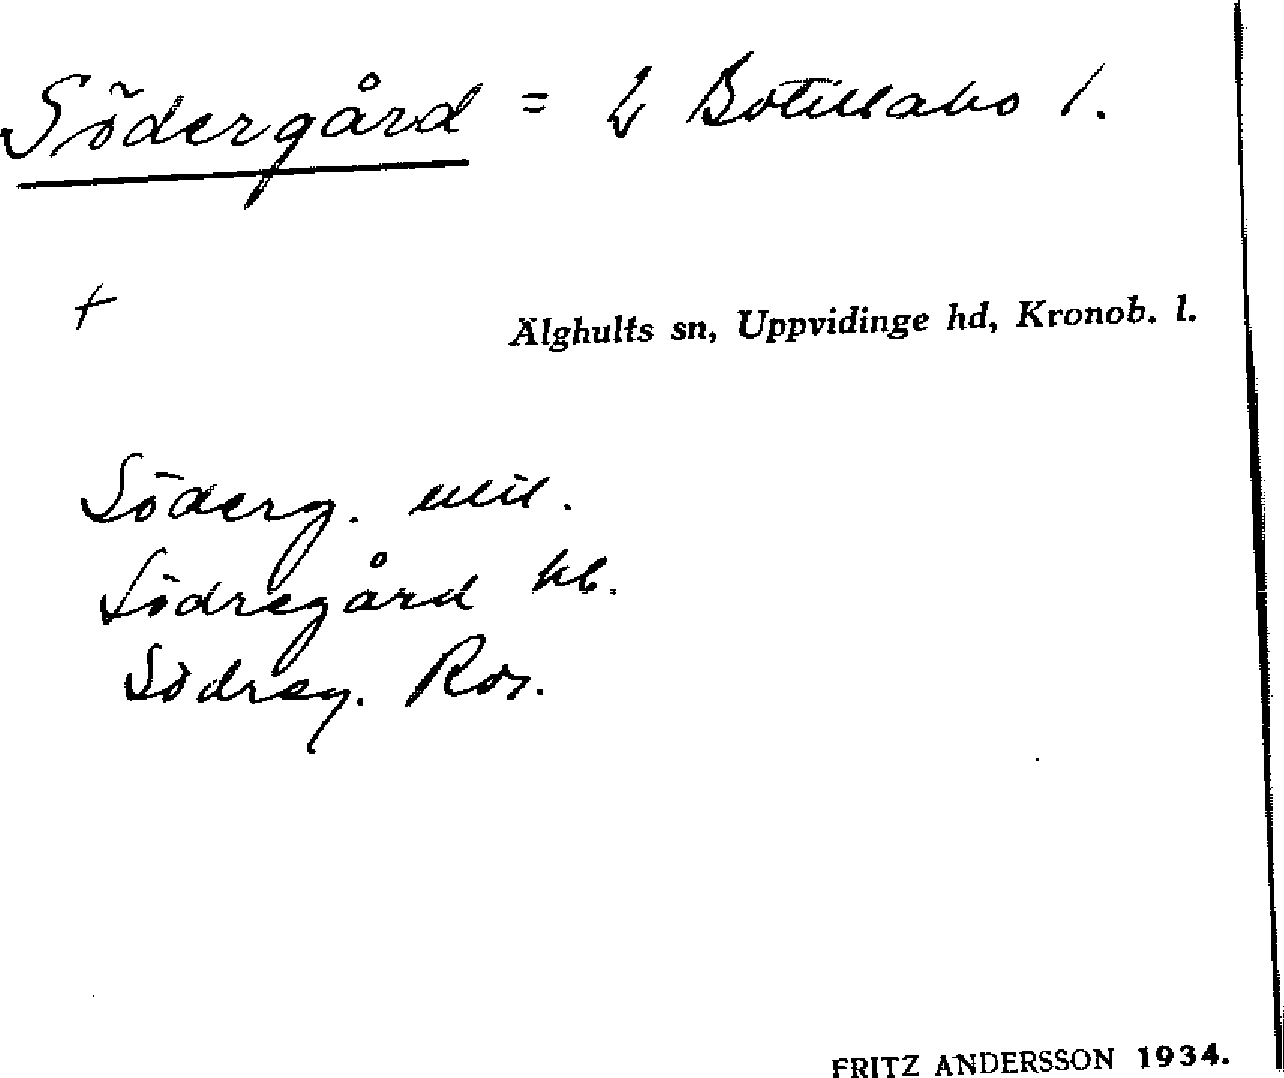 Södergård = Botillabo 1.
+
Älghults sn, Uppvidinge hd, Kronob. l.
Söderg. mil.
Södregård hb.
Södreg. Ros.
FRITZ ANDERSSON 1934.